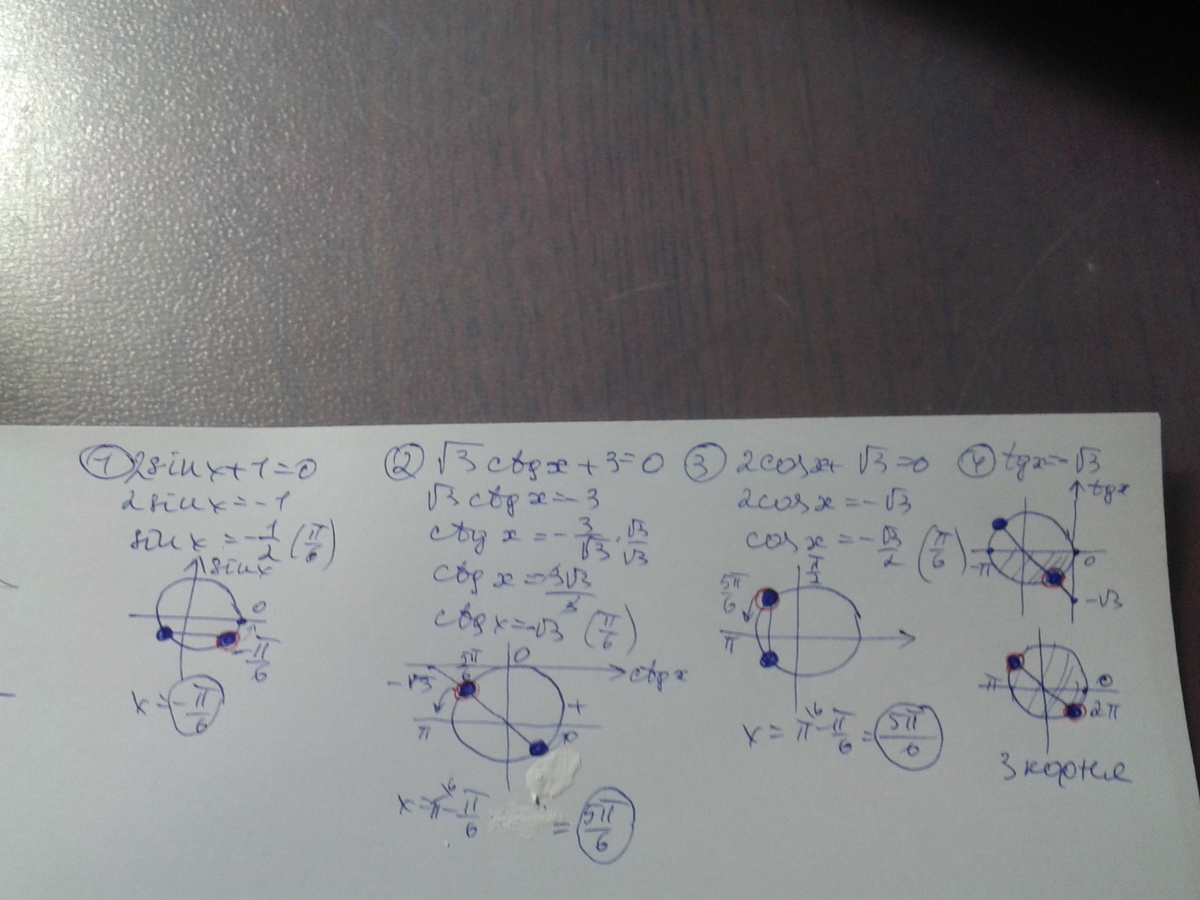 ① 2sinx+1=0
2sinx=-1
sinx=-1/2 (π/6)
sinx
0
-π/6
x=-π/6
② √3 ctgx+3=0
√3 ctgx=-3
ctgx=-3/√3·√3/√3
ctgx=-3√3/3
ctgx=-√3 (π/6)
-√3 5π/6 0 ctgx
π + 0
x=π-π/6 = 5π/6
③ 2cosx+√3=0
2cosx=-√3
cosx=-√3/2 (π/6)
π/2
5π/6
π
x=π-π/6=5π/6
④ tgx=-√3
tgx
-π 0
-√3
π 0
2π
3 корня